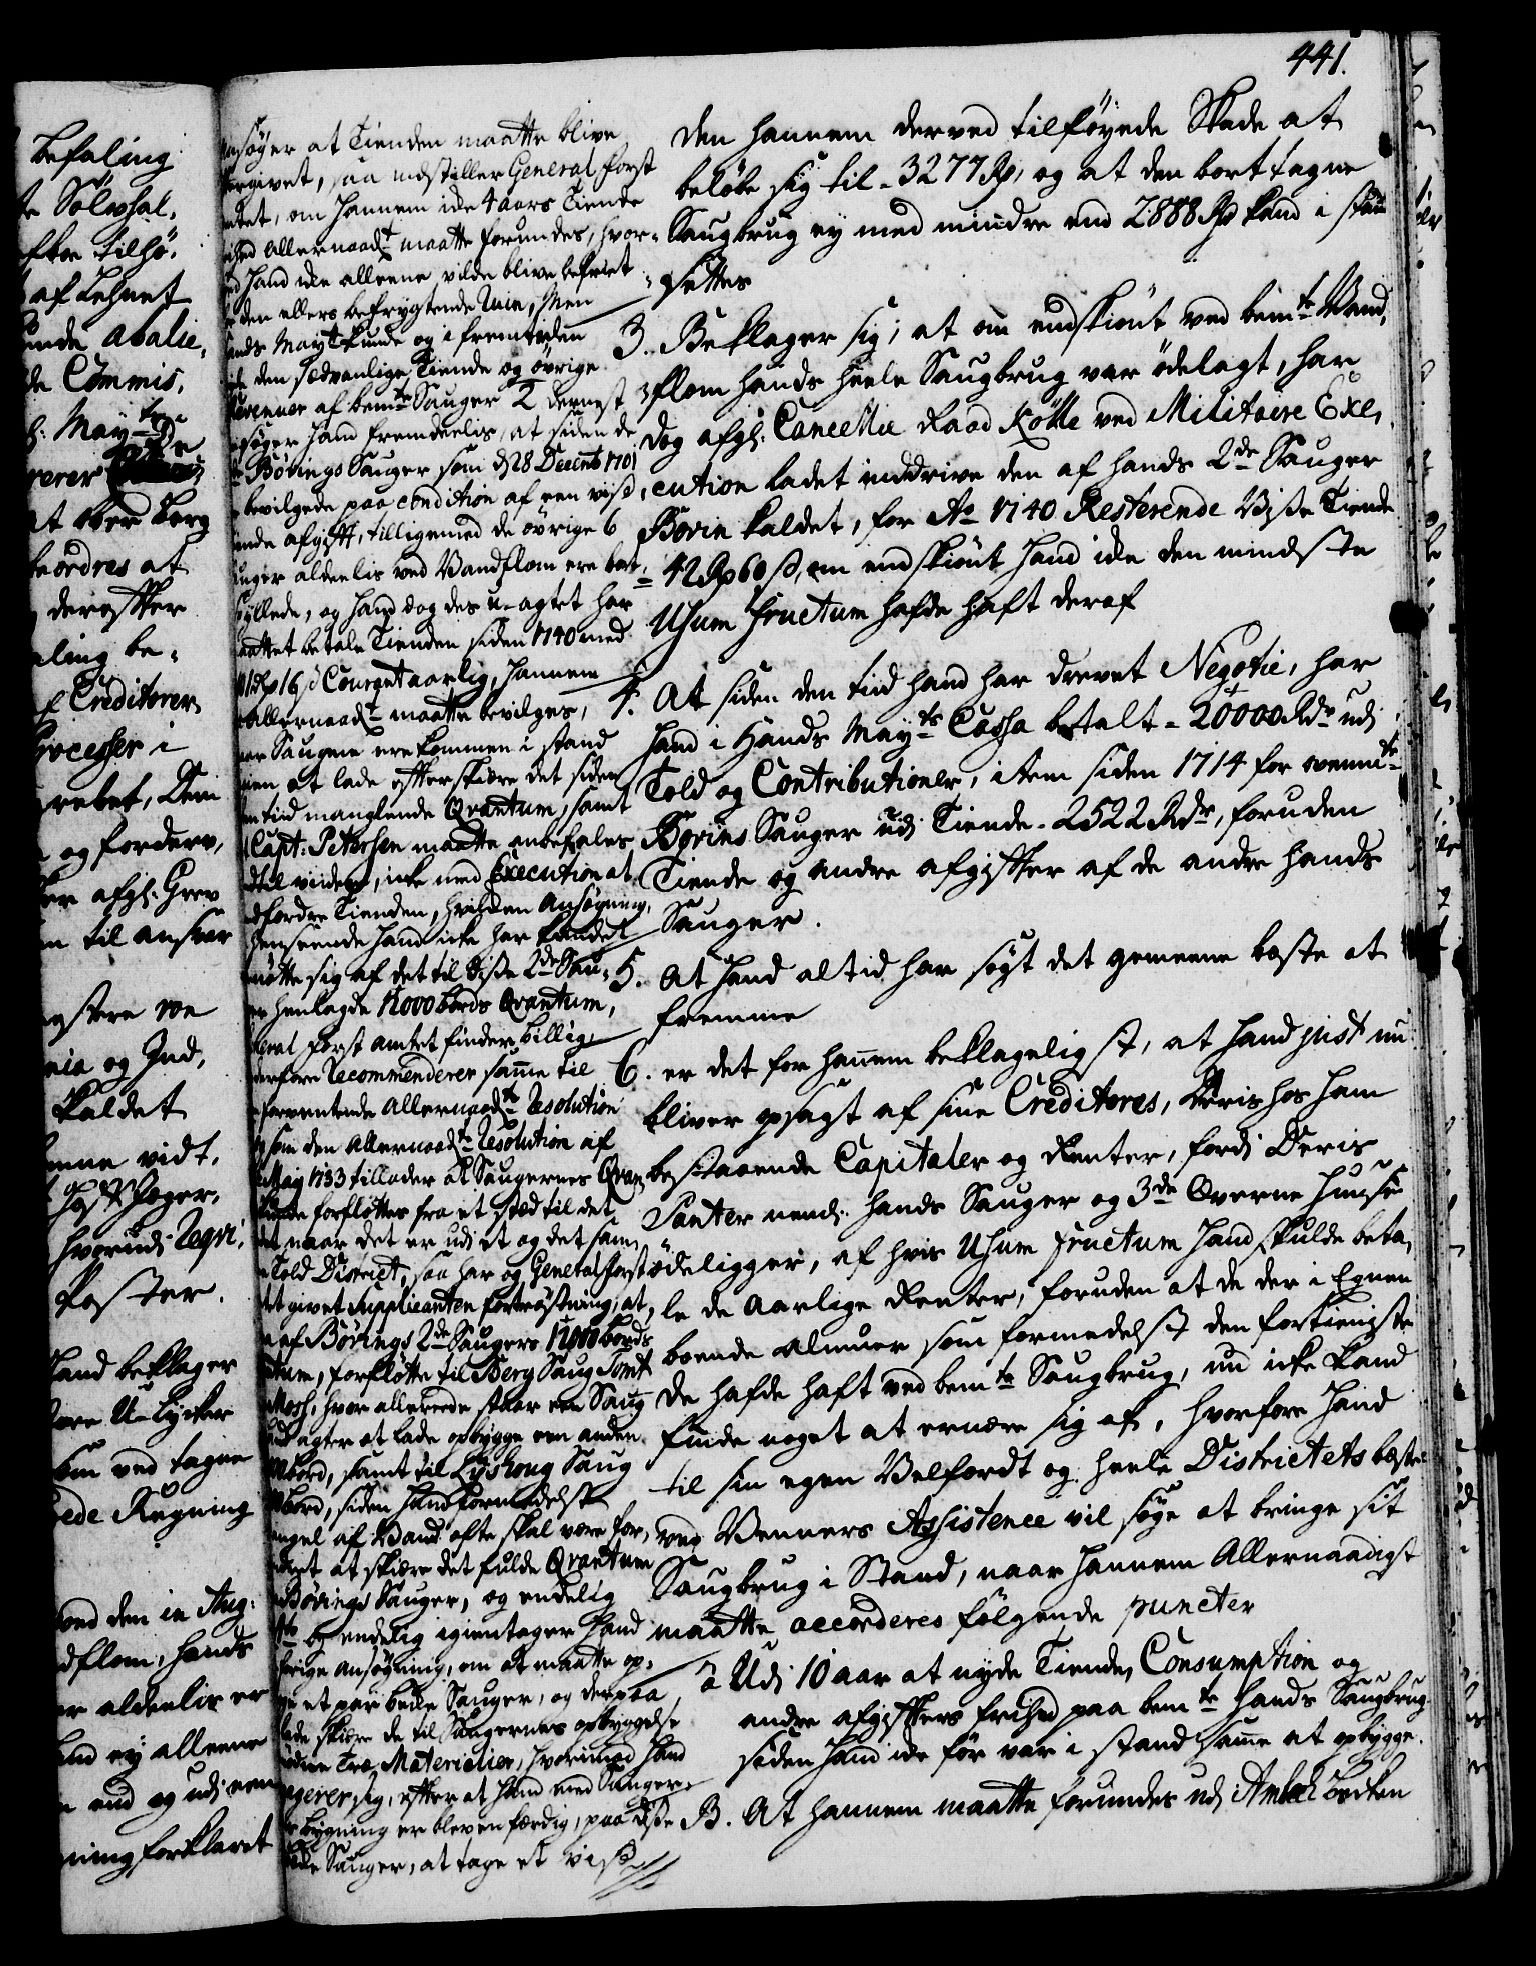 441.
befaling
te Sølvsal,
efter tilhø,
af Lehnet
unde abalie,
de Commis,
l: Mayts
rerer
at Berg
beordres at
derefter
aling be,
f Creditorer
Processer i
og forderv,
er afgl: Grev
n til ansvar
og Ind,
kaldet
vidt,
hvorudi Reqvi,
Poster.
hand beklager
U-lycker
ved tagne
Regning
ved den in Aug:
dflom, hands
er aldeelis er
ey alleene
end og udi een
ning forklaret
søger at Tienden maatte blive
ergivet, saa indstiller General Forst
ntet, om hannem icke 4 aars Tiende
ihed allernaadt maatte forundes, hvor-
ved hand icke alleene vilde blive befriet
den ellers befrygtende Ruin, Men
hands Mayt kunde og i fremtiden
den sædvanlige Tiende og øvrige
Revenuer af bemte Sauger 2 dernest
søger hand fremdeelis, at siden de
Børings Sauger som d. 28 Decemb 1701
bevilgede paa condition af een viss
ende afgift, tilligemed de øvrige 6
uger aldeelis ved Vandflom ere bort,
skyllede, og hand dog des u-agtet har
maattet betale Tienden siden 1740 med
Rdr 16 s Courant aarlig, hannem
allernaadt maatte bevilges,
naar Saugene ere kommen i stand
igien at lade efterskiære det siden
den tiid manglende Qvantum, samt
Capt: Petersen maatte anbefales
indtil videre, icke med Execution at
indfordre Tienden, hvilken Ansøgning,
henseende hand icke har kundet
nøtte sig af det til disse 2de Sau,
ger henlagde 12000 bords Qvantum,
General Forst amtet finder billig,
derfore Recommenderer samme til
forventende Allernaadte Resolution
som den allernaadte Resolution af
May 1733 tillader at Saugernes Qvan,
kunde forfløttes fra et sted til det
andet naar det er udi et og det sam,
me Told District, saa har og General Forst
amtet givet Supplicanten fortrøstning, at
af Børings 2de Saugers 12000 bords
Qvantum, forfløtte til Berg Saug Tomt
Moss, hvor allereede staar een Saug
og agter at lade opbygge een anden
bord, samt til Lysthoug Saug
bord, siden hand formedelst
mangel af Vand ofte skal være for,
hindret at skiære det fulde Qvantum
Børings Sauger, og endelig
og endelig igientager hand
forrige ansøgning, om at maatte op,
bygge et par beede Sauger, og derpaa
lade skiære de til Saugernes opbyggelse
nødige Træ Materialier, hvorimod hand
engagerer sig, efter at hand med Saugers
bygning er bleven færdig, paa disse
Sauger, at tage et viss
den hannem derved tilføyede Skade at
beløbe sig til - 3277 Rdr, og at den bort tagne
Saugbrug ey med mindre end 2888 Rdr kand i stand
settes
3. Beklager sig, at om endskiønt ved bemte Vand,
flom hands heele Saugbrug var ødelagt, har
dog afgl: Cancellie Raad Kølle ved Militaire Exe,
cution ladet inddrive den af hands 2de Sauger
Børin kaldet, for Ao 1740 Resterende Visse Tiende
42 Rdr 60 s, om endskiønt hand icke den mindste
Usum fructum hafde haft deraf
4. At siden den tiid hand har drevet Negotie, har
hand i Hands Mayts Cassa betalt - 20000 Rdr udi
Told og Contributioner, item siden 1714 for ovenmte
Børins Sauger udi Tiende - 2522 Rdr, foruden
Tiende og andre afgifter af de andre hands
Sauger.
5. At hand altid har søgt det gemeene beste at
fremme
6. er det for hannem beklageligst, at hand just nu
bliver opsagt af sine Creditores, Deris hos ham
bestaaende Capitaler og Renter, fordi Deris
Panter nemlig: hands Sauger og 3de Qverne Huuse
ødeligger, af hvis Usum fructum hand skulde beta,
le de aarlige Renter, foruden at de der i Egnen
boende almuer som formedelst den fortieniste
de hafde haft ved bemte Saugbrug, nu icke kand
finde noget at ernære sig af, hvorfore hand
til sin egen Velfærdt og heele Districtets beste
ved Venners Assistence vil søge at bringe sit
Saugbrug i Stand, naar hannem Allernaadigst
maatte accorderes følgende puncter
a Udi 10 aar at nyde Tiende, Consumption og
andre afgifters frihed paa bemte hands Saugbrug
siden hand icke før var i stand samme at opbygge.
B. At hannem maatte forundes udi